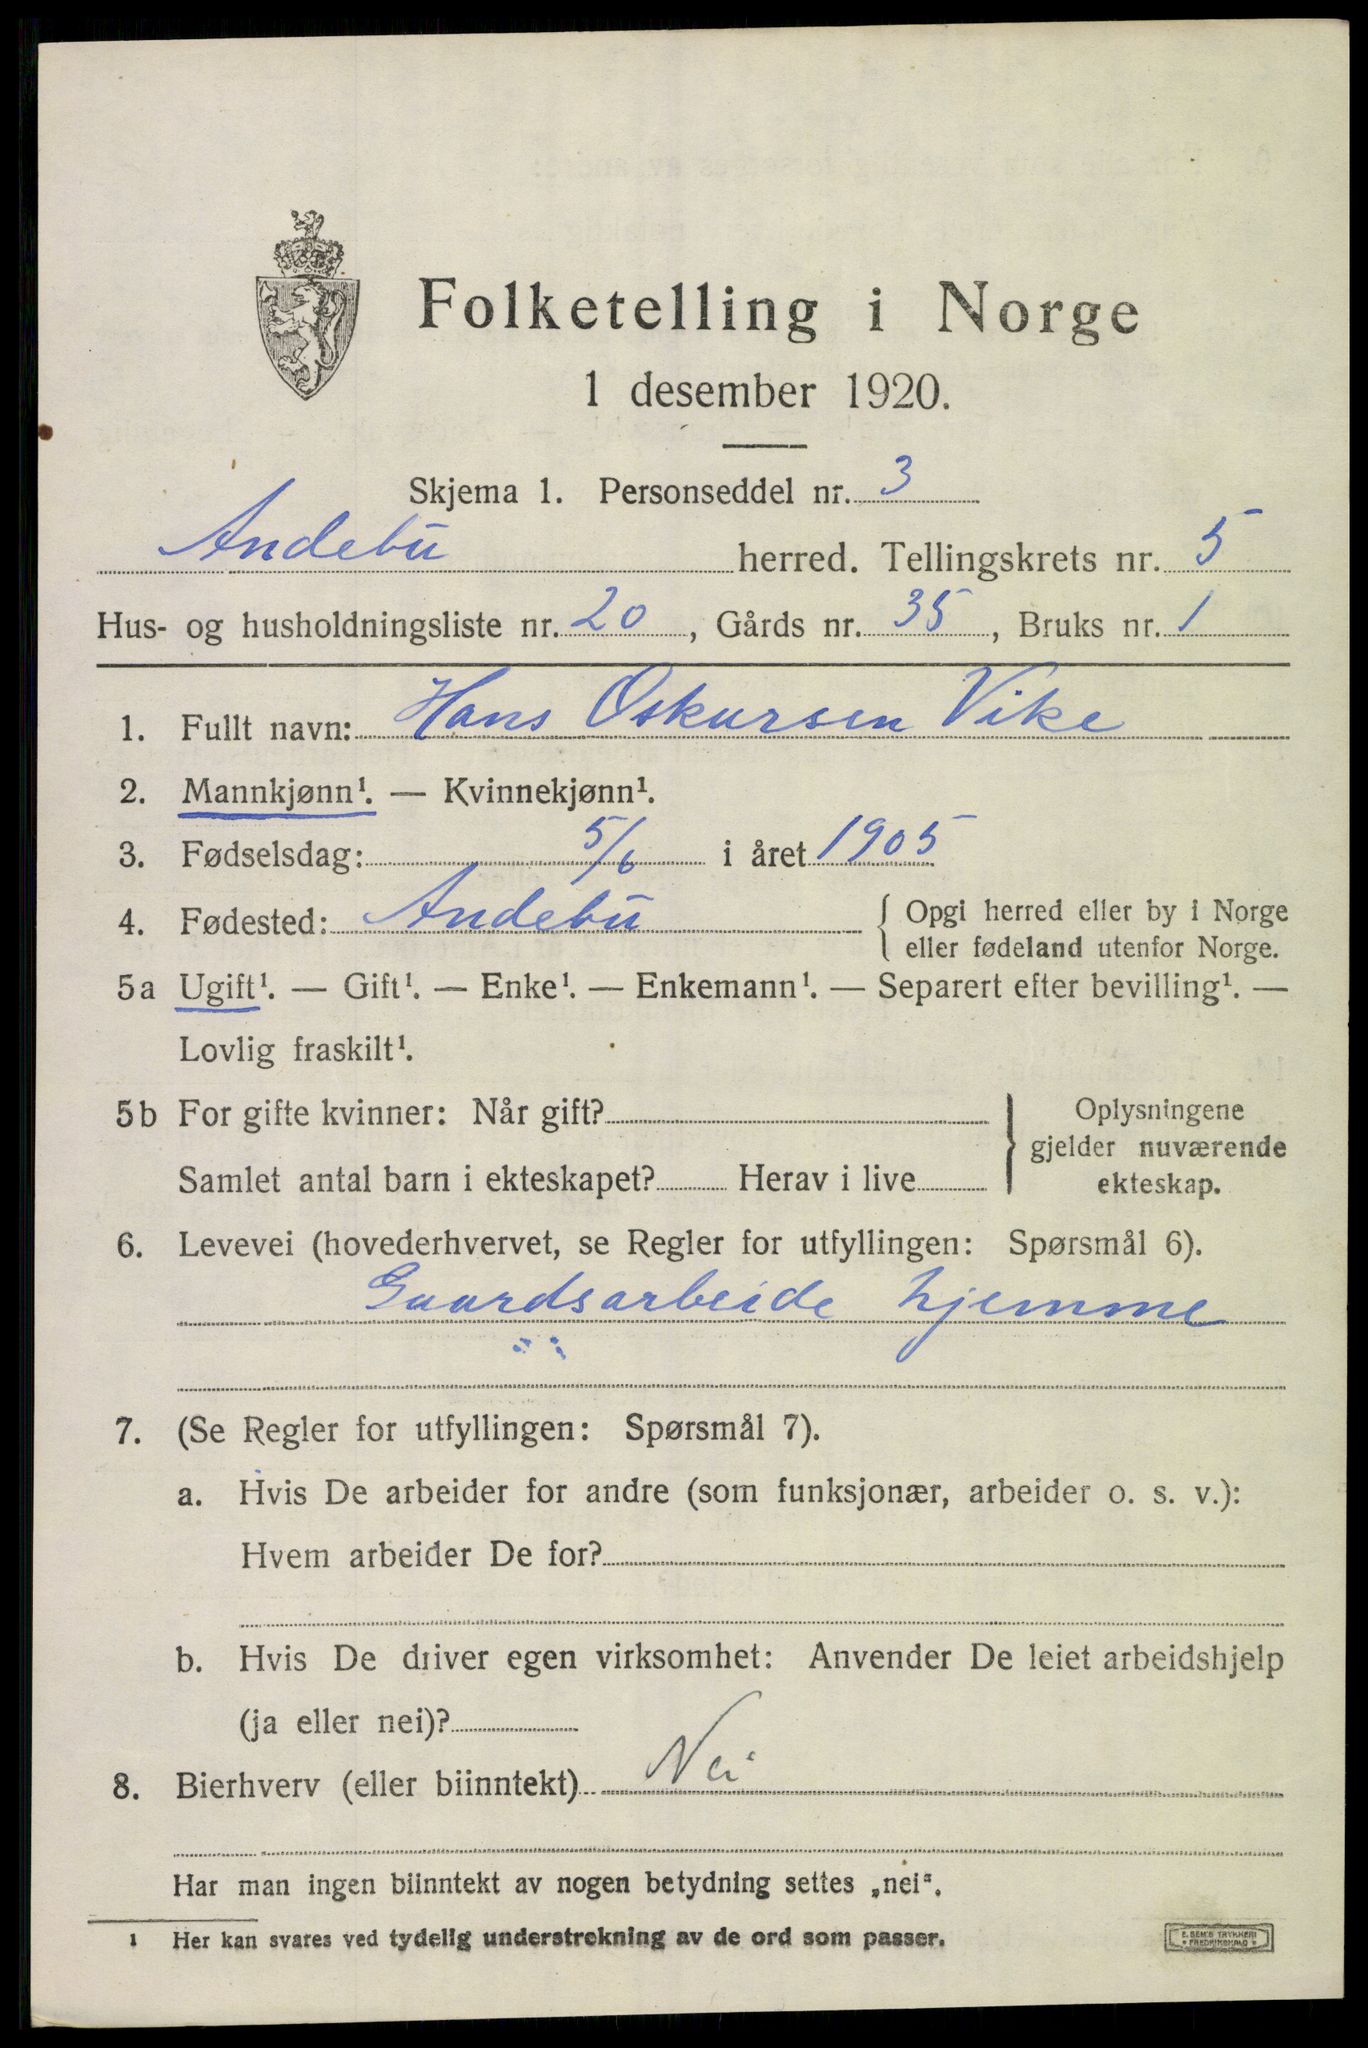 Folketelling i Norge
1 desember 1920.
Skjema 1. Personseddel nr. 3
Andebu herred. Tellingskrets nr. 5
Hus- og husholdningsliste nr. 20, Gårds nr. 35, Bruks nr. 1
1. Fullt navn: Hans Oskarsen Vike
2. Mannkjønn¹. — Kvinnekjønn¹.
3. Fødselsdag: 5/6 i året 1905
4. Fødested: Andebu { Opgi herred eller by i Norge
eller fødeland utenfor Norge.
5a Ugift¹. — Gift¹. — Enke¹. — Enkemann¹. — Separert efter bevilling¹. —
Lovlig fraskilt¹.
5b For gifte kvinner: Når gift?
Samlet antal barn i ekteskapet? Herav i live
} Oplysningene
gjelder nuværende
ekteskap.
6. Levevei (hovederhvervet, se Regler for utfyllingen: Spørsmål 6).
Gaardsarbeide hjemme
7. (Se Regler for utfyllingen: Spørsmål 7).
a. Hvis De arbeider for andre (som funksjonær, arbeider o. s. v.):
Hvem arbeider De for?
b. Hvis De driver egen virksomhet: Anvender De leiet arbeidshjelp
(ja eller nei)?
8. Bierhverv (eller biinntekt) Nei
Har man ingen biinntekt av nogen betydning settes „nei".
1 Her kan svares ved tydelig understrekning av de ord som passer.
E. SEM'S TRYKKERI
FREDRIKSHALD